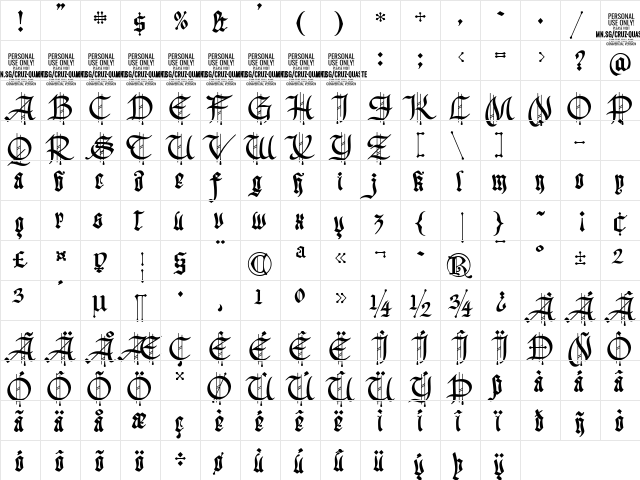 ! " # $ % & ' ( ) * + , - . / PERSONAL USE ONLY!
PERSONAL USE ONLY! PERSONAL USE ONLY! PERSONAL USE ONLY! PERSONAL USE ONLY! PERSONAL USE ONLY! PERSONAL USE ONLY! PERSONAL USE ONLY! PERSONAL USE ONLY! PERSONAL USE ONLY! : ; < = > ? @
A B C D E F G H I J K L M N O P
Q R S T U V W X Y Z [ \ ] -
a b c d e f g h i j k l m n o p
q r s t u v w x y z { | } ~ ¡ ¢
£ ¤ ¥ ¦ § ¨ © ª « ¬ - ® ¯ ° ± 2
3 ´ µ ¶ · ¸ 1 º » ¼ ½ ¾ ¿ À Á Â
Ã Ä Å Æ Ç È É Ê Ë Ì Í Î Ï Ð Ñ Ò
Ó Ô Õ Ö × Ø Ù Ú Û Ü Ý Þ ß à á â
ã ä å æ ç è é ê ë ì í î ï ð ñ ò
ó ô õ ö ÷ ø ù ú û ü ý þ ÿ